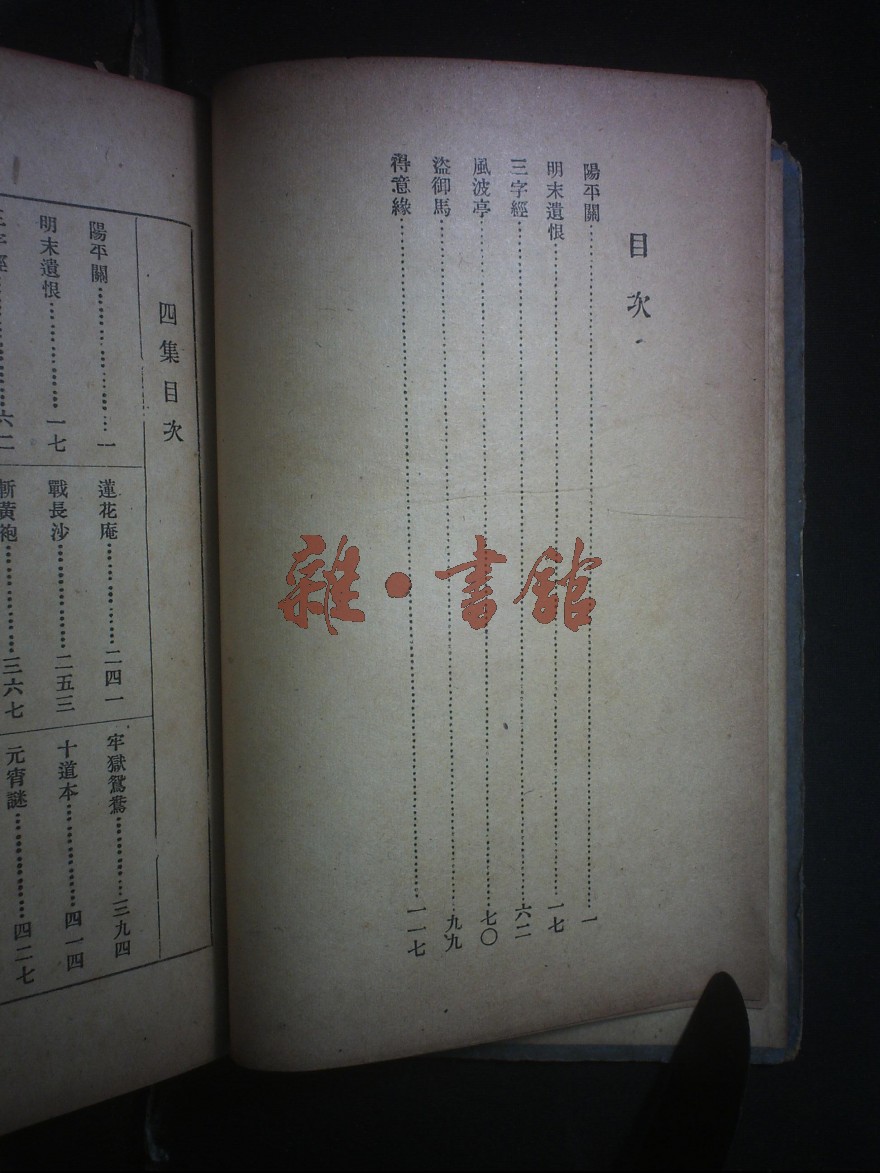 目次
陽平關……一
明末遺恨……一七
三字經……六二
風波亭……七〇
盜御馬……九九
得意緣……一一七
雜·書館
四集目次
陽平關……一
明末遺恨……一七
三字經……六二
蓮花庵……二四一
戰長沙……二五三
斬黃袍……三六七
牢獄鴛鴦……三九四
十道本……四一四
元宵謎……四二七